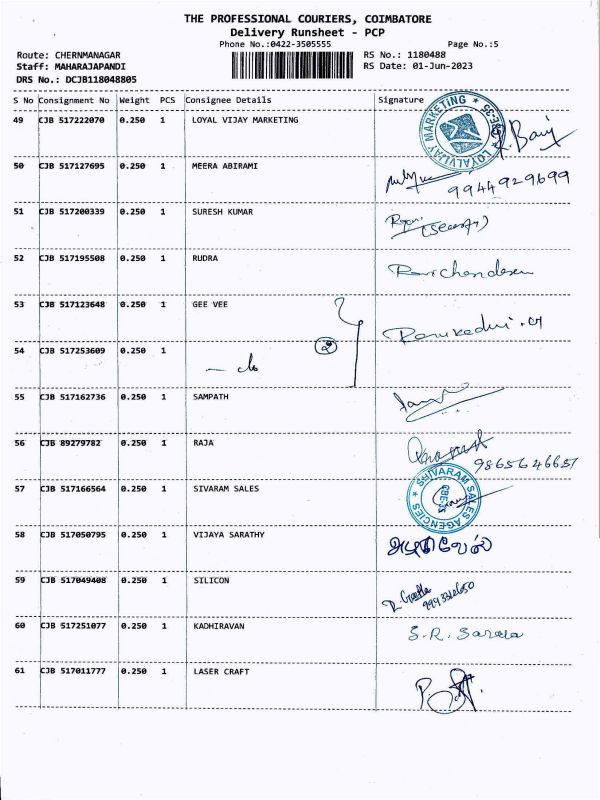 THE PROFESSIONAL COURIERS, COIMBATORE
Delivery Runsheet - PCP
Phone No.:0422-3505555 Page No.:5
Route: CHERNMANAGAR RS No.: 1180488
Staff: MAHARAJAPANDI RS Date: 01-Jun-2023
DRS No.: DCJB118048805
S No Consignment No Weight PCS Consignee Details Signature
49 CJB 517222070 0.250 1 LOYAL VIJAY MARKETING
LOYALVIJAY MARKETING * CBE-35 *
50 CJB 517127695 0.250 1 MEERA ABIRAMI
9944929699
51 CJB 517200339 0.250 1 SURESH KUMAR
52 CJB 517195508 0.250 1 RUDRA
53 CJB 517123648 0.250 1 GEE VEE
54 CJB 517253609 0.250 1
2
— do
55 CJB 517162736 0.250 1 SAMPATH
56 CJB 89279782 0.250 1 RAJA
9865646657
57 CJB 517166564 0.250 1 SIVARAM SALES
* SHIVARAM SALES AGENCIES * CBE-35
58 CJB 517050795 0.250 1 VIJAYA SARATHY
59 CJB 517049408 0.250 1 SILICON
60 CJB 517251077 0.250 1 KADHIRAVAN S.R. Sarala
61 CJB 517011777 0.250 1 LASER CRAFT